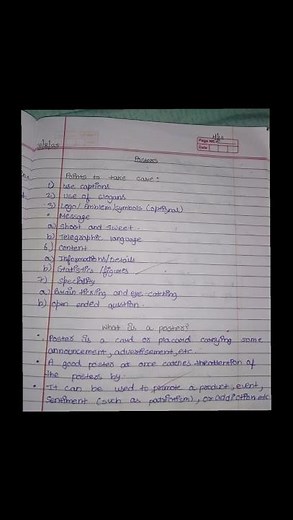 Posters
Points to take care:
1) use captions
2) use of slogans
3) Logo/Emblem/symbols (optional)
• Message
a) short and sweet.
b) Telegraphic language
6) content
a) Informations/Details
b) Statistics /figures
7) speciality
a) Brain and eye-catching
b) open ended question.
What is a poster?
• Poster is a card or placard carrying some
announcement, advertisement, etc
• A good poster at once catches the attention of
the posters by
• It can be used to promote a product, event,
sentiment (such as patriotism), or addiction etc